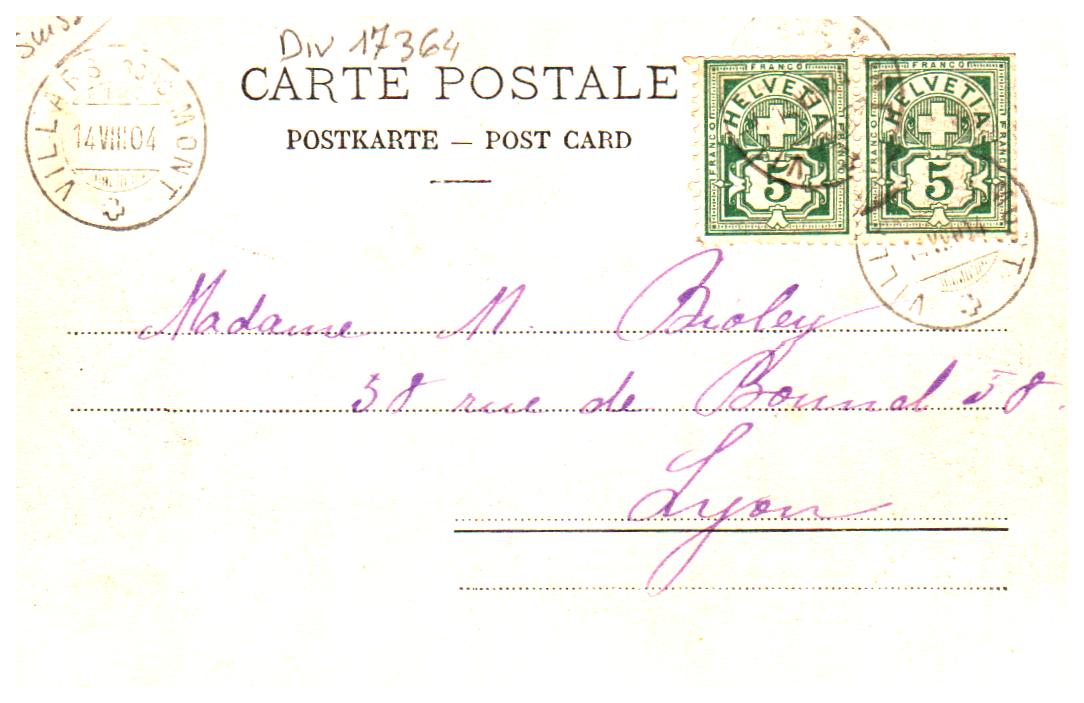 Suisse
Div 17364
CARTE POSTALE
POSTKARTE — POST CARD
VILLARS SOUS MONT
14 VIII 04
FRANCO
FRANCO
FRANCO
HELVETIA
5
FRANCO
FRANCO
FRANCO
HELVETIA
5
Madame M. Bioley
58 rue de Bonnel 58.
Lyon